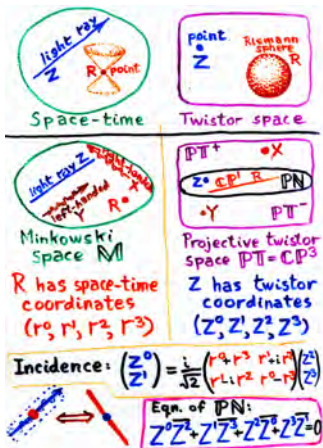 light ray
Z
R
point
Space-time
point
Z
Riemann
sphere
R
Twistor space
light ray Z
right-handed
X
left-handed
Y
R
Minkowski
space 𝕄
ℙ𝕋⁺
X
Z
ℂℙ¹ R
ℙℕ
Y
ℙ𝕋⁻
Projective twistor
space ℙ𝕋=ℂℙ³
R has space-time
coordinates
(r⁰, r¹, r², r³)
Z has twistor
coordinates
(Z⁰, Z¹, Z², Z³)
Incidence: (Z⁰ Z¹) = i/√2 (r⁰+r³ r¹+ir² r¹-ir² r⁰-r³)(Z² Z³)
Eqn. of ℙℕ:
Z⁰Z̅²+Z¹Z̅³+Z²Z̅⁰+Z³Z̅¹=0